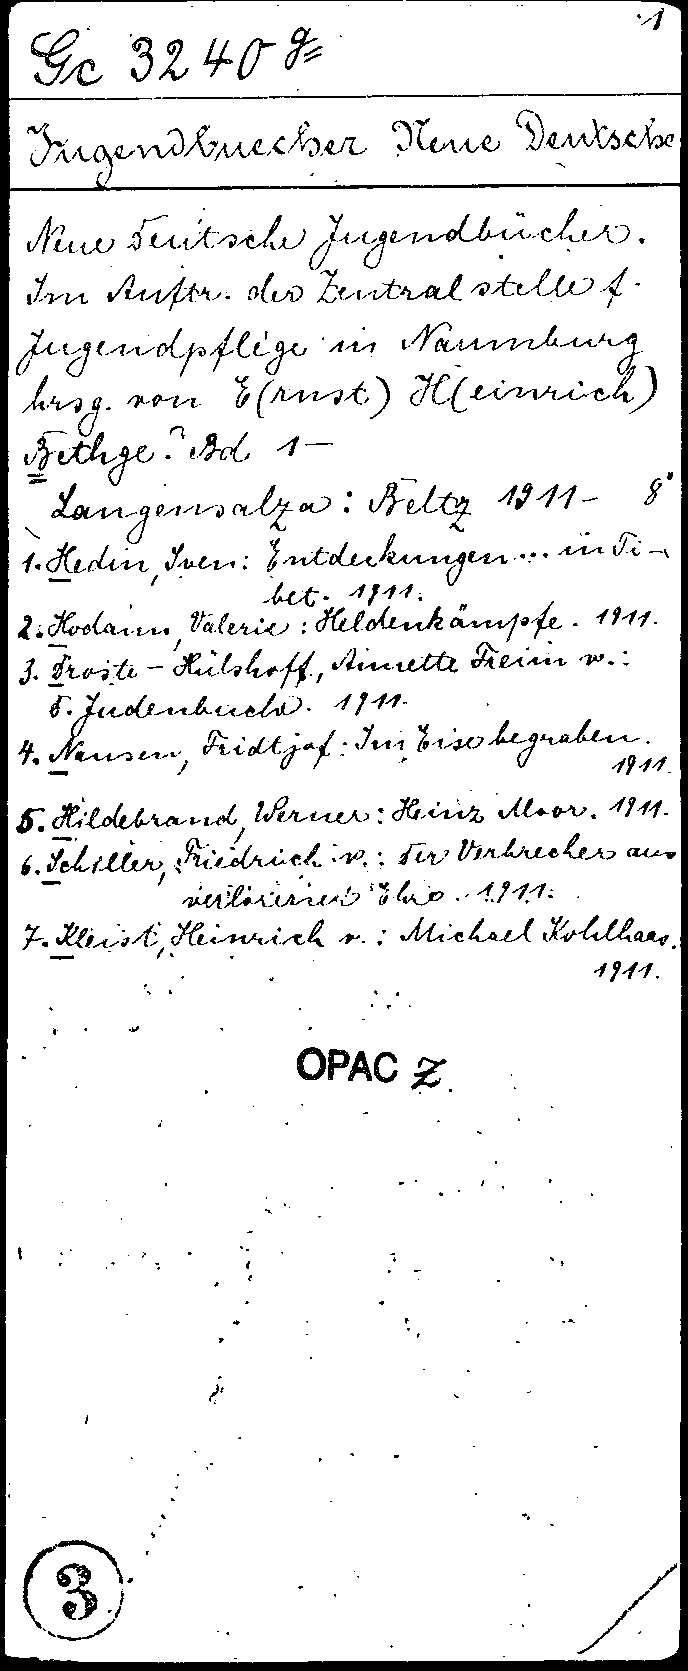 1
Gc 3240 g=
Jugendbuecher Neue Deutsche
Neue Deutsche Jugendbücher.
Im Auftr. der Zentralstelle f.
Jugendpflege in Naumburg
hrsg. von E(rnst) H(einrich)
Bethge. Bd 1-
Langensalza: Beltz 1911- 8°
1. Hedin, Sven: Entdeckungen... in Ti-
bet. 1911.
2. Hodann, Valerie: Heldenkämpfe. 1911.
3. Droste-Hülshoff, Annette Freiin v.:
D. Judenbuche. 1911.
4. Nansen, Fridtjof: Im Eise begraben.
1911.
5. Hildebrand, Werner: Heinz Moor. 1911.
6. Schiller, Friedrich v.: Der Verbrecher aus
verlorener Ehre. 1911.
7. Kleist, Heinrich v.: Michael Kohlhaas.
1911.
OPAC Z
3